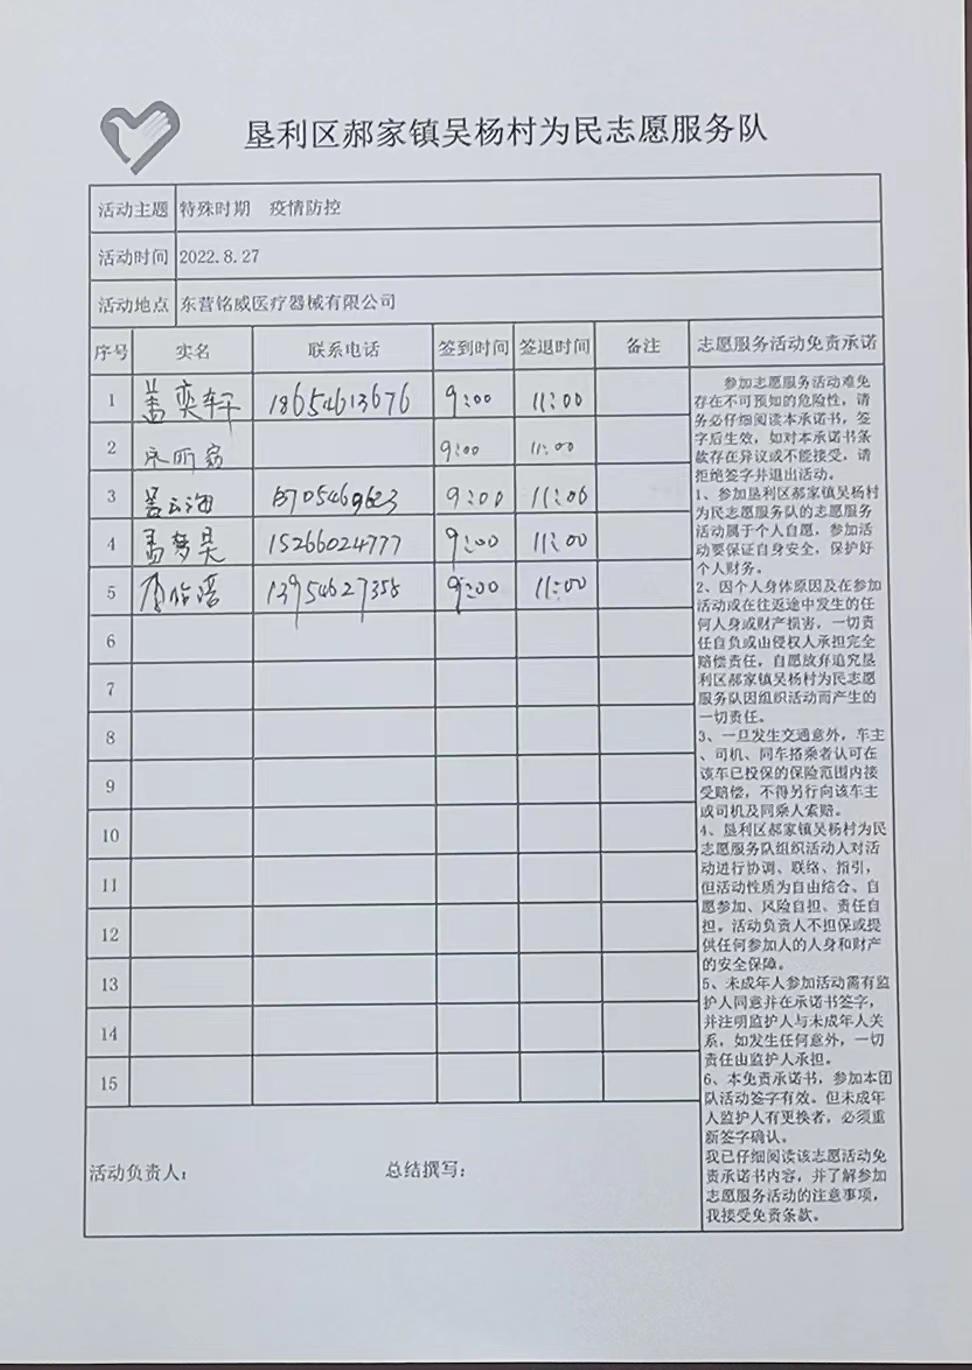 垦利区郝家镇吴杨村为民志愿服务队
活动主题 特殊时期 疫情防控
活动时间 2022.8.27
活动地点 东营铭威医疗器械有限公司
序号 实名 联系电话 签到时间 签退时间 备注 志愿服务活动免责承诺
1 盖奕轩 18654613676 9:00 11:00
2 9:00 11:00
3 9:00 11:00
4 孟梦昊 15266024777 9:00 11:00
5 13954627358 9:00 11:00
6
7
8
9
10
11
12
13
14
15
参加志愿服务活动难免
存在不可预知的危险性，请
务必仔细阅读本承诺书，签
字后生效，如对本承诺书条
款存在异议或不能接受，请
拒绝签字并退出活动。
1、参加垦利区郝家镇吴杨村
为民志愿服务队的志愿服务
活动属于个人自愿，参加活
动要保证自身安全，保护好
个人财务。
2、因个人身体原因及在参加
活动或在往返途中发生的任
何人身或财产损害，一切责
任自负或由侵权人承担完全
赔偿责任，自愿放弃追究垦
利区郝家镇吴杨村为民志愿
服务队因组织活动而产生的
一切责任。
3、一旦发生交通意外，车主
、司机、同车搭乘者认可在
该车已投保的保险范围内接
受赔偿，不得另行向该车主
或司机及同乘人索赔。
4、垦利区郝家镇吴杨村为民
志愿服务队组织活动人对活
动进行协调、联络、指引，
但活动性质为自由结合、自
愿参加、风险自担、责任自
担。活动负责人不担保或提
供任何参加人的人身和财产
的安全保障。
5、未成年人参加活动需有监
护人同意并在承诺书签字，
并注明监护人与未成年人关
系，如发生任何意外，一切
责任由监护人承担。
6、本免责承诺书，参加本团
队活动签字有效。但未成年
人监护人有更换者，必须重
新签字确认。
我已仔细阅读该志愿活动免
责承诺书内容，并了解参加
志愿服务活动的注意事项，
我接受免责条款。
活动负责人： 总结撰写：